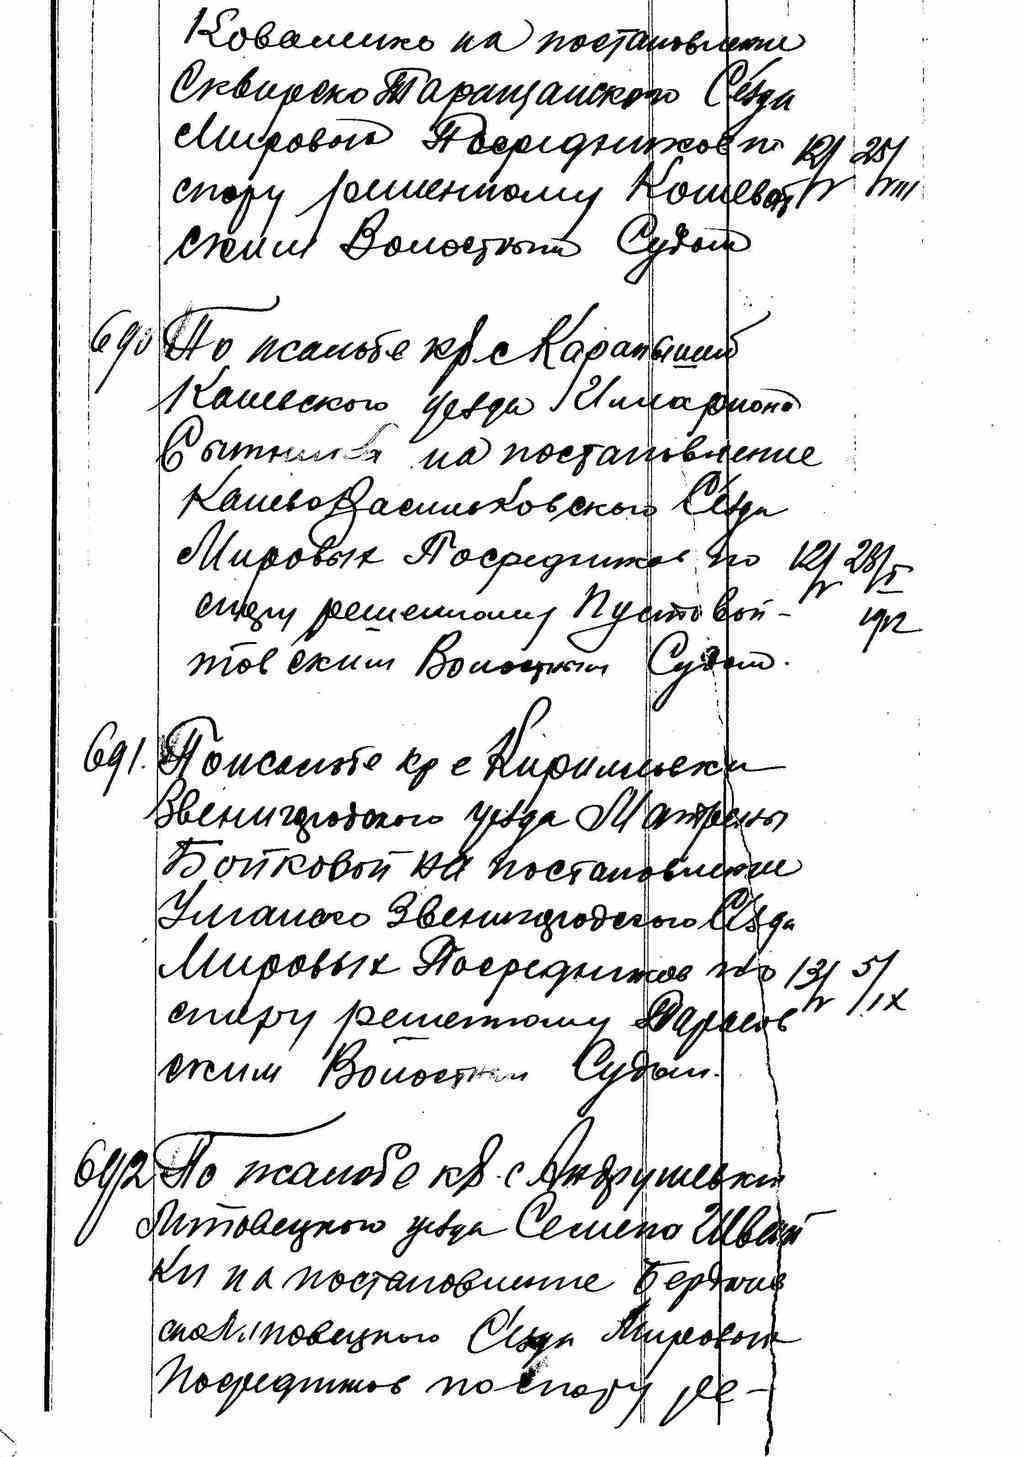 Коваленко на постановление
Сквирско Таращанского Съезда
Мировых Посредников по 12/V 25/VIII
спору решенному Кошеват
ским Волостным Судом
690 По жалобе кр. с. Карапышей
Каневского уезда Иллариона
Сытника на постановление
Канево Васильковского Съезда
Мировых Посредников по 12/V 28/I
спору решенному Пустовой- 1912
товским Волостным Судом.
691. По жалобе кр с Кирилловки
Звенигородского уезда Матрены
Бойковой на постановление
Уманско Звенигородского Съезда
Мировых Посредников по 13/V 5/IX
спору решенному Тарасов
ским Волостным Судом.
692 По жалобе кр. с Андрушевки
Липовецкого уезда Семена Швай
ки на постановление Бердичев
ско Липовецкого Съезда Мировых
Посредников по спору ре-